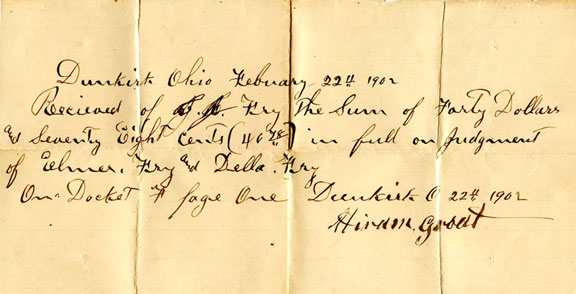 Dunkirk Ohio Febuary 22th 1902
Recieved of J. A. Fry the Sum of Forty Dollars
and Seventy Eight cents (40 78) in full on Judgment
of Elmer. Fry and Della. Fry
On Docket F page One Dunkirk O 22th 1902
Hiram. Groat